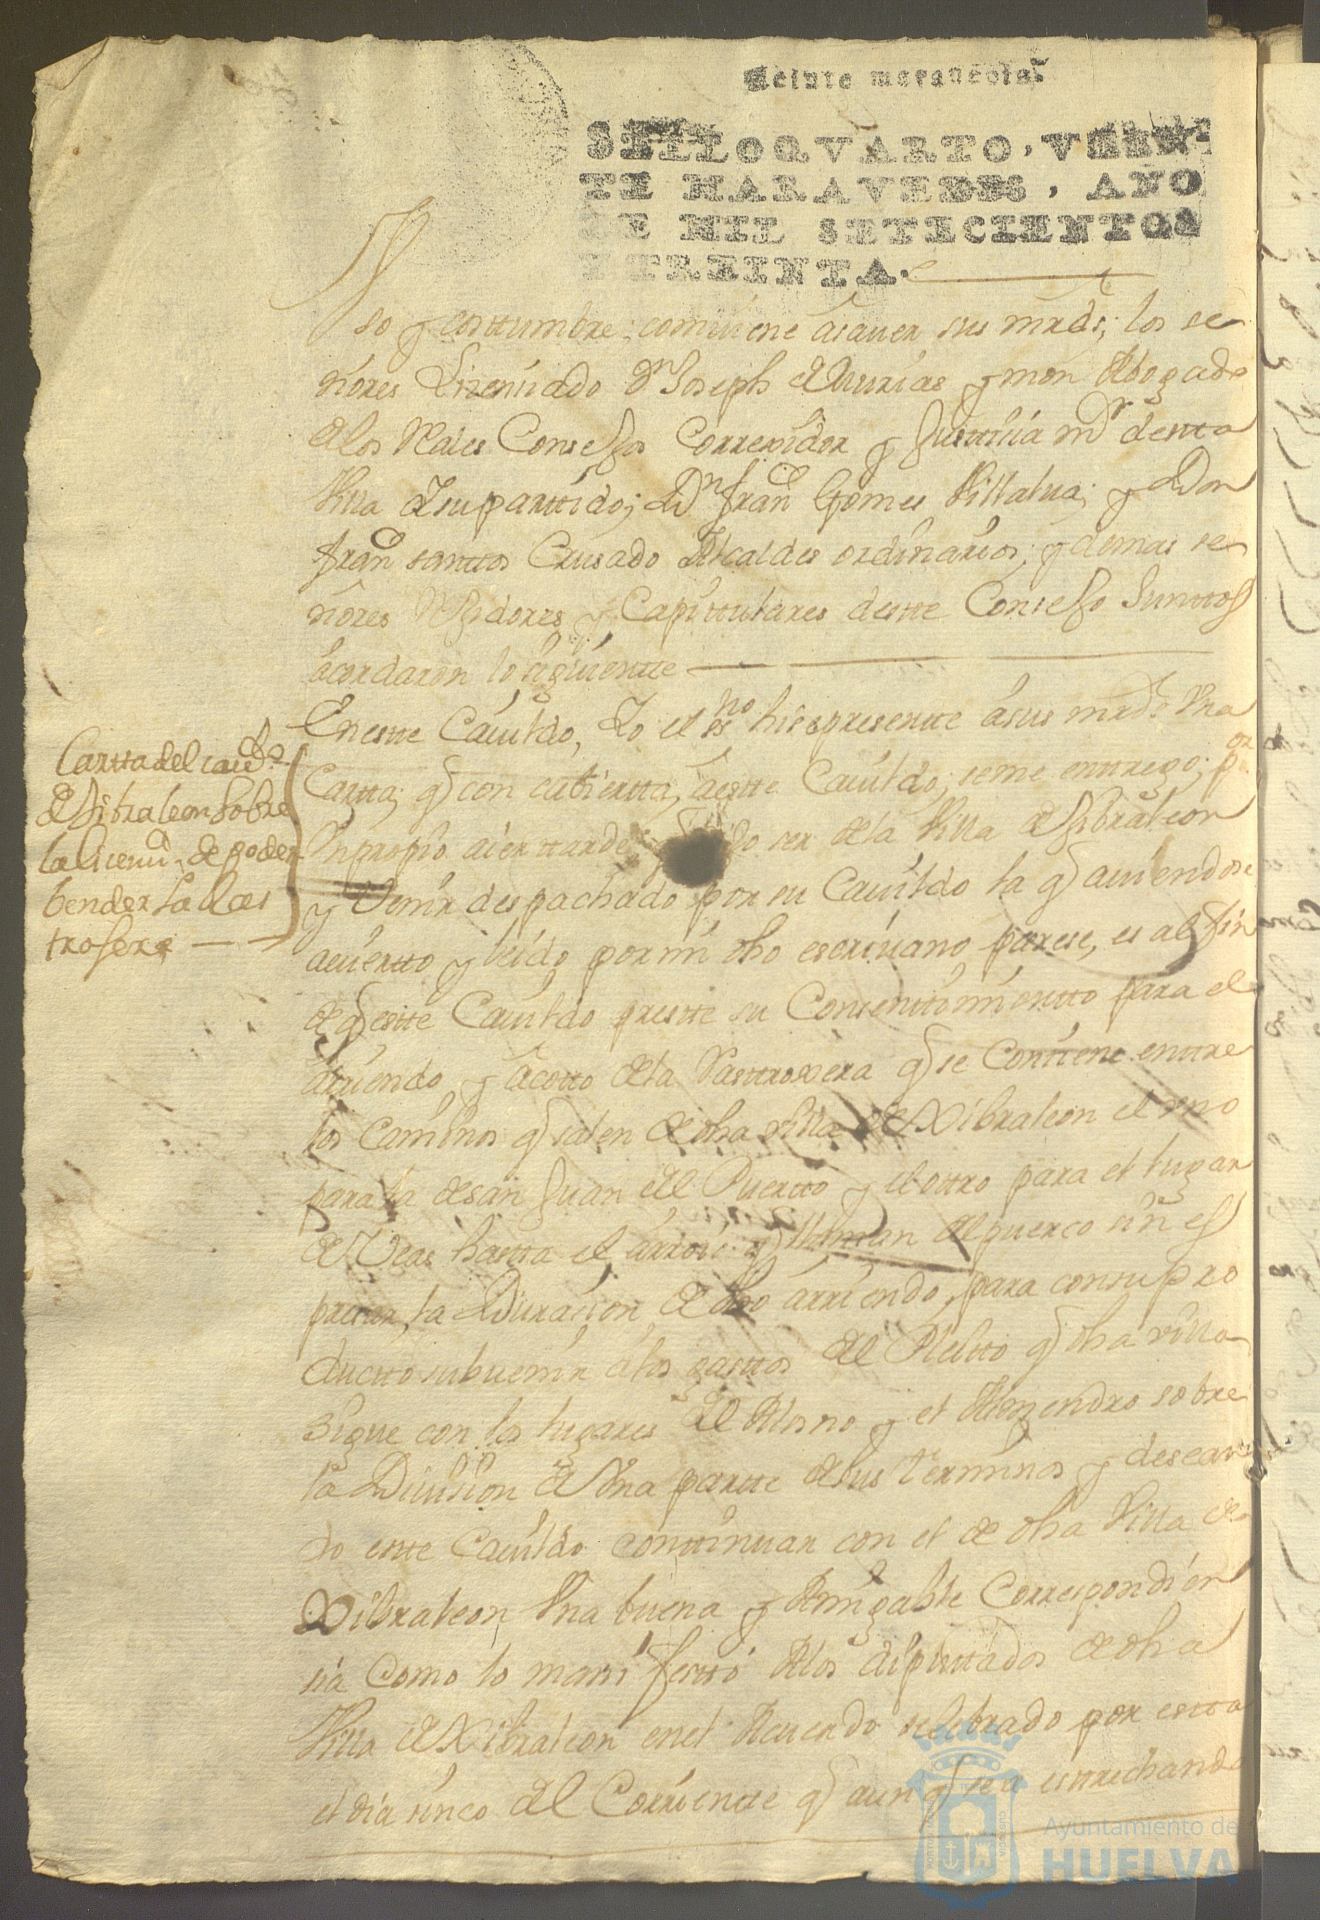 Veinte maravedis.
SELLO QVARTO, VEIN-
TE MARAVEDIS, AÑO
DE MIL SETECIENTOS
Y TREINTA.
so y costtumbre; combiene âsaver sus mrds; los se
ñores Lizenziado Dn Joseph de Murias y mon Abogado
de los Rales Consejos Correxidor y Justticia mor destta
Villa de su parttido; Dn Franco Gomes Villalva; y Don
Franco santtos Crusado Alcaldes ordinarios; y demas se
ñores Rejidores y Capittulares destte Consejo Junttos
acordaron lo siguientte
En estte Cavildo, Yo el esno hise presentte â sus mrds Vna
Cartta; q con cubiertta, â estte Cavildo; se me enttrego; por
Vn propio aier ttarde ser de la Villa de Jibraleon
y Venir despachado por su Cavildo la q aviendose
avierto y leido por mi dho escrivano parese, es al fin
de q estte Cavildo prestte su Consenttimientto para el
arriendo y acotto de la Rasttroxera q se Conttiene enttre
los Caminos q salen de dha villa de Xibraleon el vno
para la de san Juan del Puertto y el ottro para el lugar
de Veas hastta el arroio q llaman del puerco sin es
presar la Durazion de dho arriendo, para con su pro
ductto subvenir a los gasttos del Pleitto q dha villa
sigue con los lugares del Alosno y el Almendro sobre
la Division de Vna partte de sus terminos y desean
do estte Cavildo conttinuar con el de dha Villa de
Xibraleon Vna buena y Amigable Correspondien
sia Como lo manifesttó A los diputtados de dha
Villa de Xibraleon en el Acuerdo selebrado por estta
el dia sinco del Corrientte q aun q sea esttrechando
Cartta del cavdo
de Jibraleon sobre
la licenzia de poder
bender la Ras
trojera
Ayuntamiento de
HUELVA